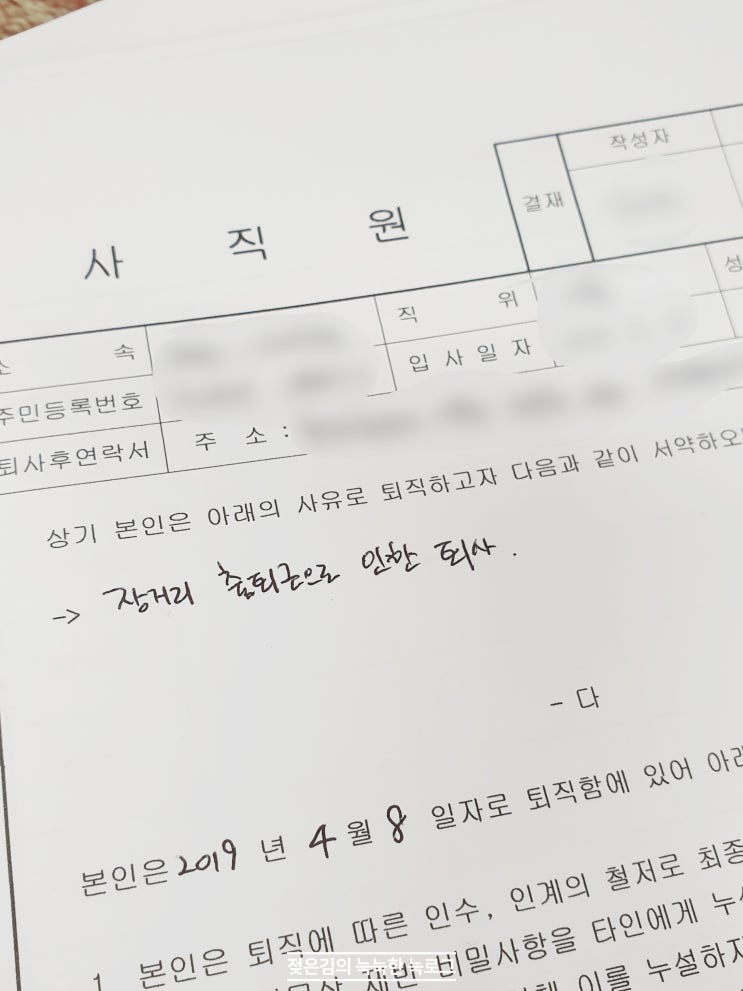 작성자
결재
사 직 원
소 속
직 위
성
주민등록번호
입 사 일 자
퇴사후연락서
주 소 :
상기 본인은 아래의 사유로 퇴직하고자 다음과 같이 서약하오
-> 장거리 출퇴근으로 인한 퇴사 .
- 다
본인은 2019 년 4 월 8 일자로 퇴직함에 있어 아래
1. 본인은 퇴직에 따른 인수, 인계의 철저로 최종
비밀사항을 타인에게 누설
이를 누설하지
젖은김의 눅눅한 눅로그